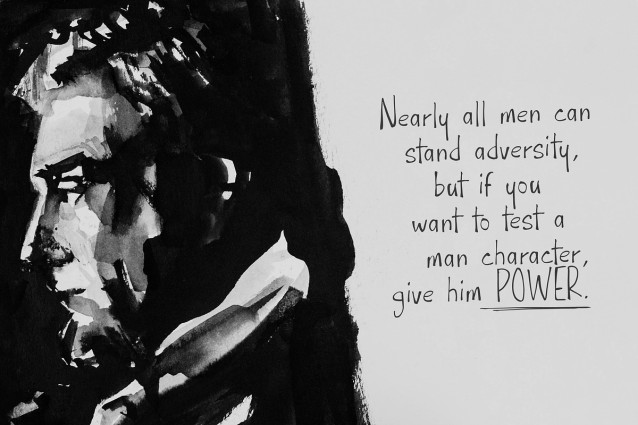 Nearly all men can
stand adversity,
but if you
want to test a
man character,
give him POWER.